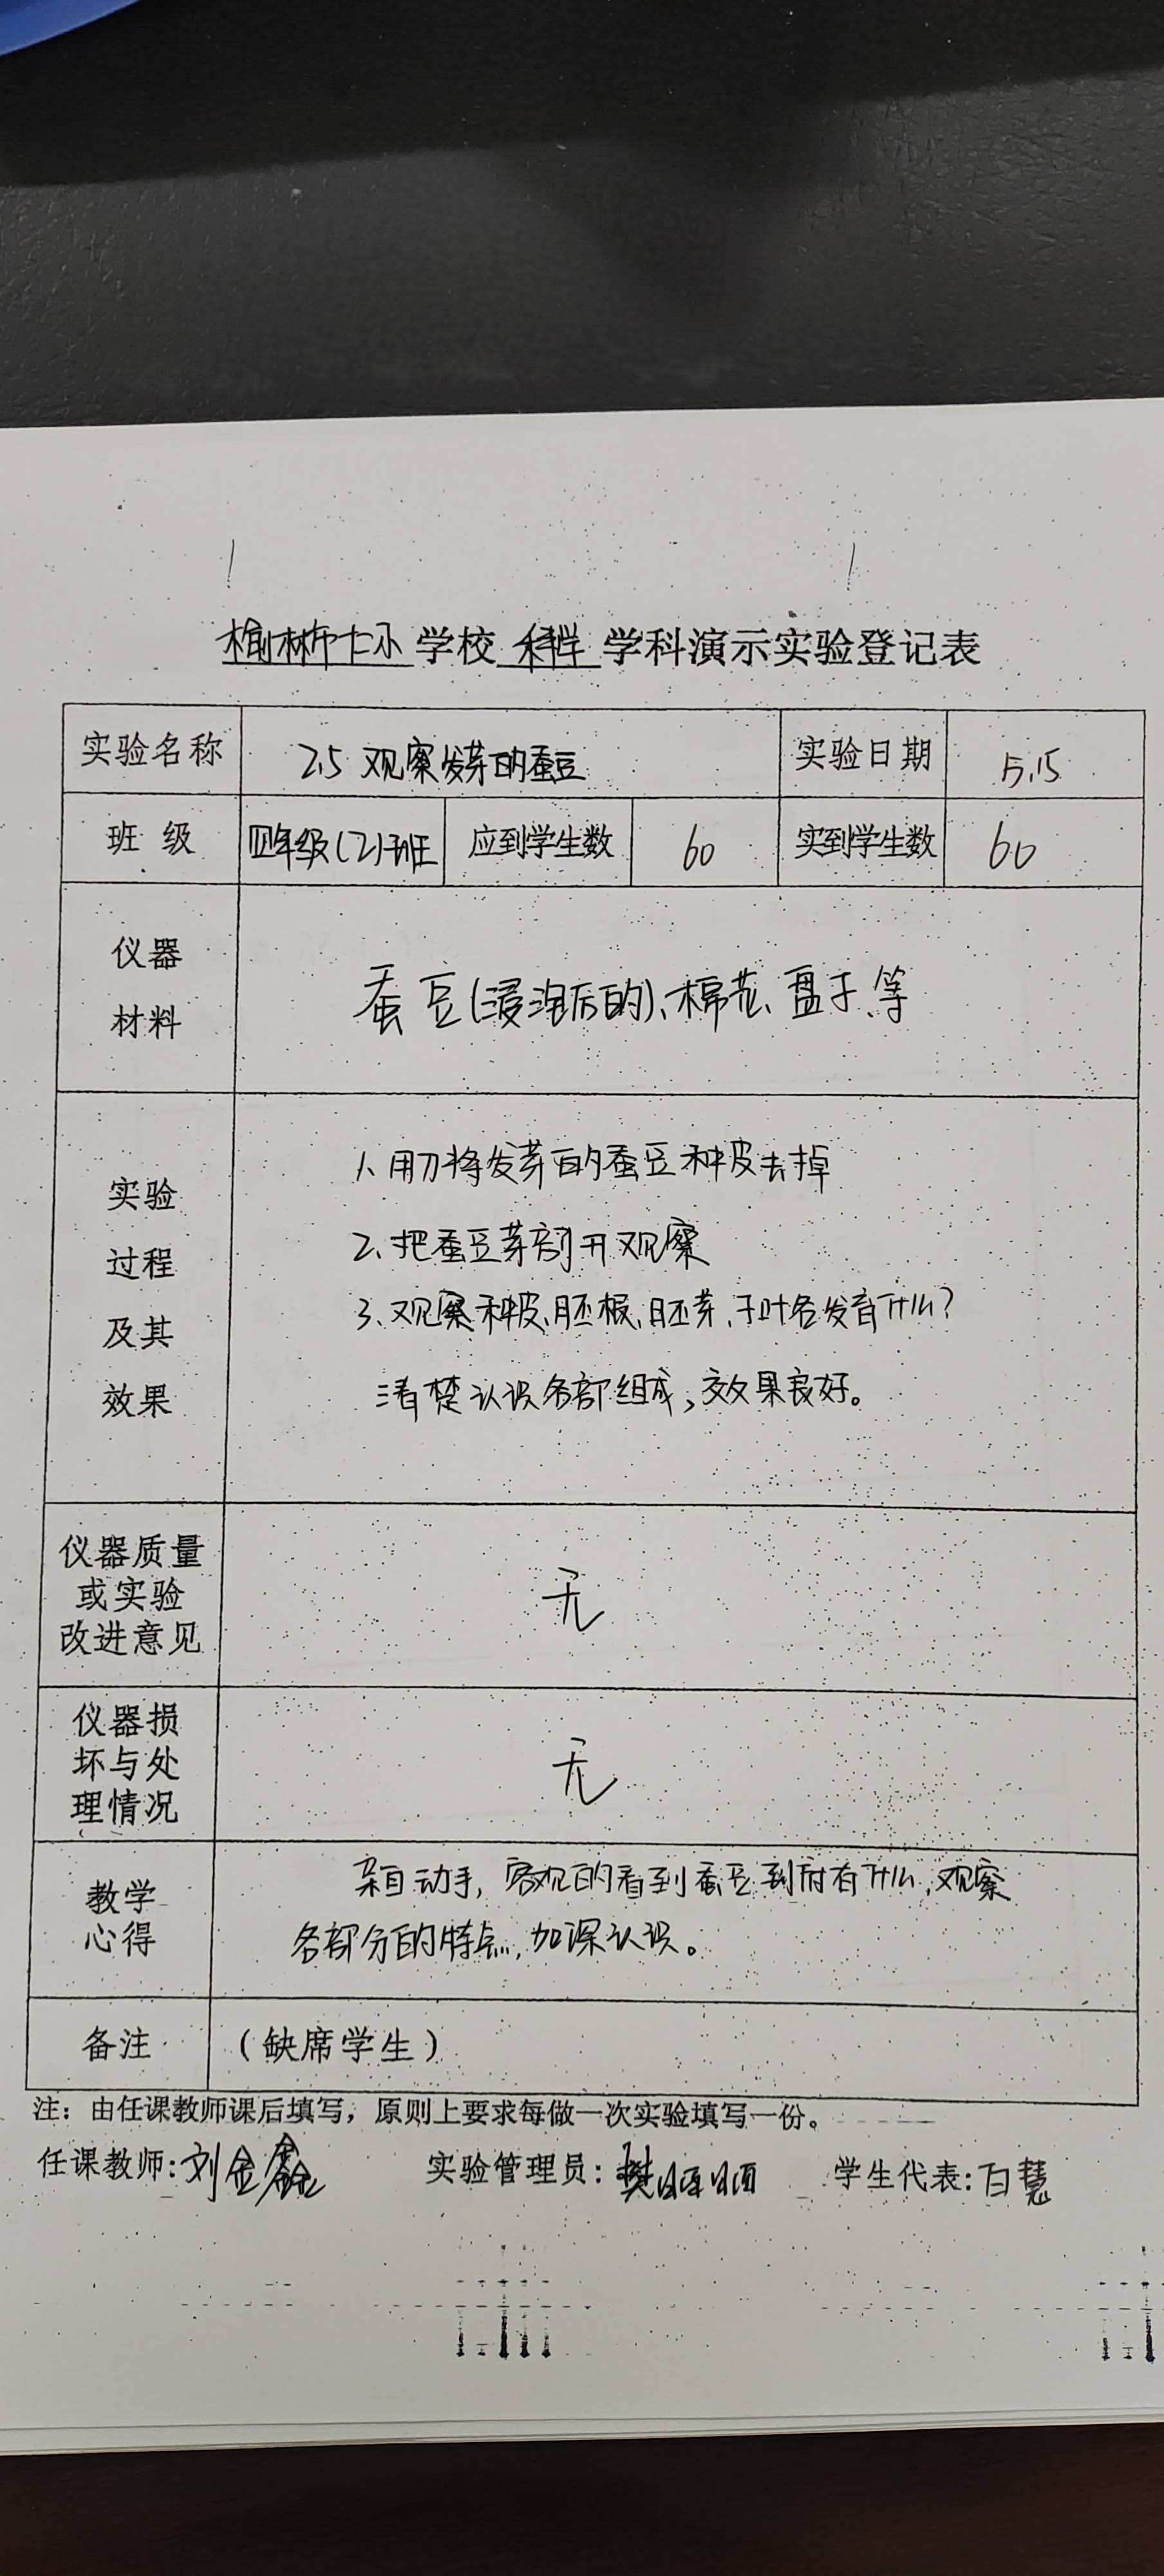 榆林市七小 学校 科学 学科演示实验登记表
实验名称 2.5 观察发芽的蚕豆 实验日期 5.15
班 级 四年级(2)班 应到学生数 60 实到学生数 60
仪器
材料
蚕豆(浸泡后的)、棉花、盘子、等
实验
过程
及其
效果
1、用刀将发芽的蚕豆种皮去掉
2、把蚕豆芽剖开观察
3、观察种皮、胚根、胚芽、子叶各发育什么?
清楚认识各部组成,效果良好。
仪器质量
或实验
改进意见
无
仪器损
坏与处
理情况
无
教学
心得
亲自动手,客观的看到蚕豆到有什么,观察
各部分的特点,加深认识。
备注 (缺席学生)
注:由任课教师课后填写,原则上要求每做一次实验填写一份。
任课教师:刘金鑫 实验管理员:樊 学生代表:白慧